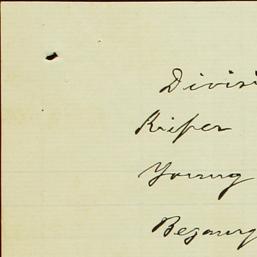 Divisi
Kiefer
Young
Bezaury